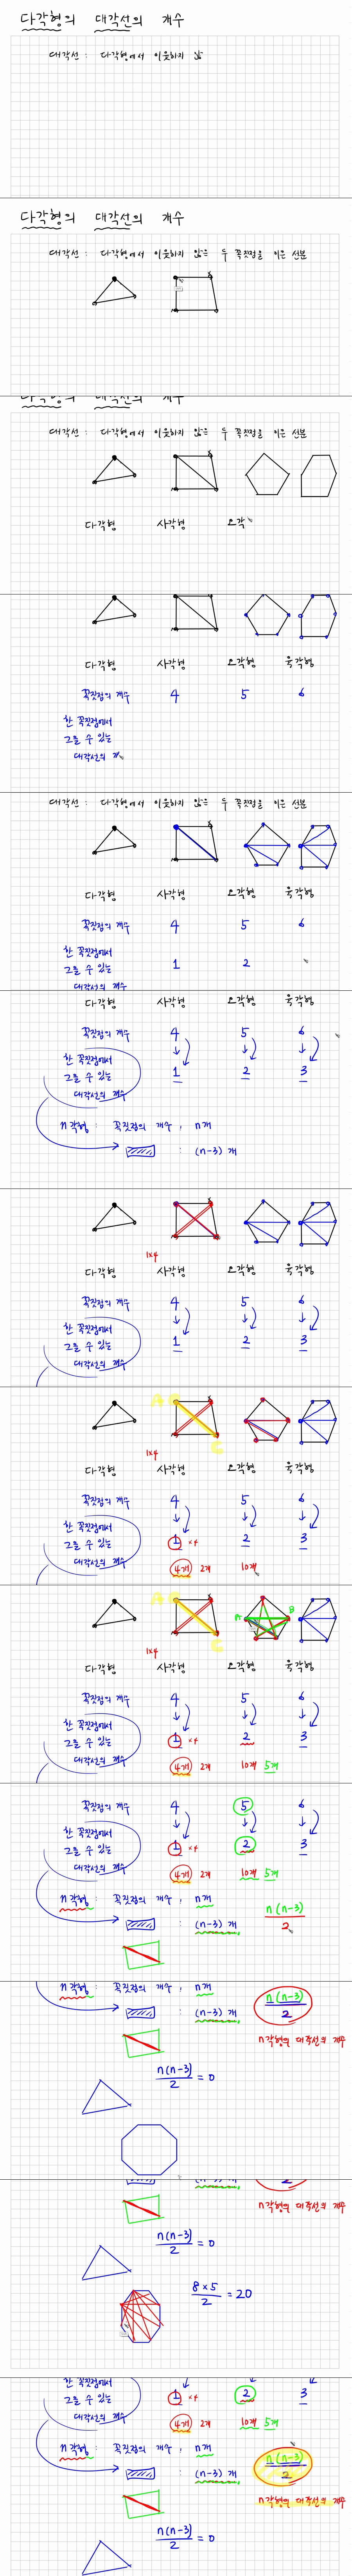 다각형의 대각선의 개수
대각선 : 다각형에서 이웃하지 않
다각형의 대각선의 개수
대각선 : 다각형에서 이웃하지 않은 두 꼭짓점을 이은 선분
다각형의 대각선의 개수
대각선 : 다각형에서 이웃하지 않은 두 꼭짓점을 이은 선분
다각형 사각형 오각
다각형 사각형 오각형 육각형
꼭짓점의 개수 4 5 6
한 꼭짓점에서
그을 수 있는
대각선의 개
대각선 : 다각형에서 이웃하지 않은 두 꼭짓점을 이은 선분
다각형 사각형 오각형 육각형
꼭짓점의 개수 4 5 6
한 꼭짓점에서
그을 수 있는 1 2
대각선의 개수
다각형 사각형 오각형 육각형
꼭짓점의 개수 4 5 6
한 꼭짓점에서
그을 수 있는 1 2 3
대각선의 개수
n각형 : 꼭짓점의 개수 , n개
: (n-3) 개
1×4
다각형 사각형 오각형 육각형
꼭짓점의 개수 4 5 6
한 꼭짓점에서
그을 수 있는 1 2 3
대각선의 개수
A C
C
1×4
다각형 사각형 오각형 육각형
꼭짓점의 개수 4 5 6
한 꼭짓점에서
그을 수 있는 1 ×4 2 3
대각선의 개수 4개 2개 10개
A C
A B
C
1×4
다각형 사각형 오각형 육각형
꼭짓점의 개수 4 5 6
한 꼭짓점에서
그을 수 있는 1 ×4 2 3
대각선의 개수 4개 2개 10개 5개
꼭짓점의 개수 4 5 6
한 꼭짓점에서
그을 수 있는 1 ×4 2 3
대각선의 개수 4개 2개 10개 5개
n각형 : 꼭짓점의 개수 , n개
: (n-3) 개
n(n-3)
2
n각형 : 꼭짓점의 개수 , n개
: (n-3) 개
n(n-3)
2
n각형의 대각선의 개수
n(n-3)
2 = 0
(n-3) 개
2
n각형의 대각선의 개수
n(n-3)
2 = 0
8×5
2 = 20
한 꼭짓점에서
그을 수 있는 1 ×4 2 3
대각선의 개수 4개 2개 10개 5개
n각형 : 꼭짓점의 개수 , n개
: (n-3) 개
n(n-3)
2
n각형의 대각선의 개수
n(n-3)
2 = 0